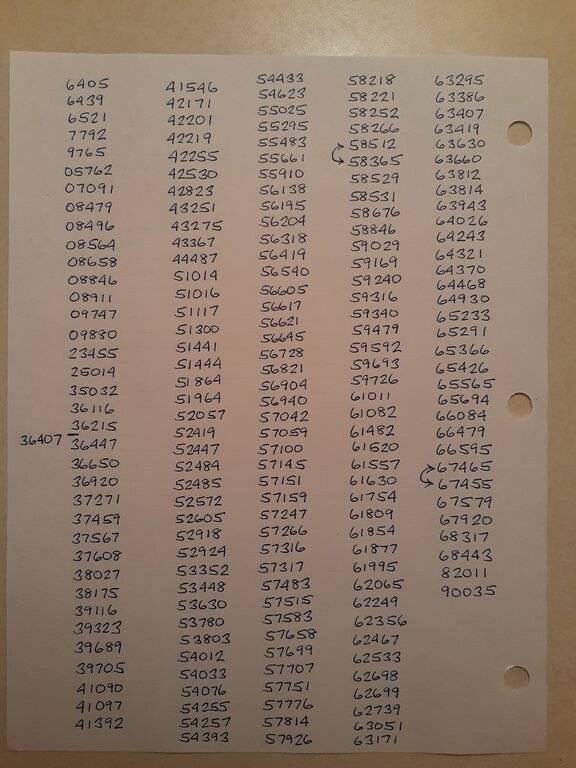 6405
6439
6521
7792
9765
05762
07091
08479
08496
08564
08658
08846
08911
09747
09880
23455
25014
35032
36116
36215
36407
36447
36650
36920
37271
37459
37567
37608
38027
38175
39116
39323
39689
39705
41090
41097
41392
41546
42171
42201
42219
42255
42530
42823
43251
43275
43367
44487
51014
51016
51117
51300
51441
51444
51864
51964
52057
52419
52447
52484
52485
52572
52605
52918
52924
53352
53448
53630
53780
53803
54012
54033
54076
54255
54257
54393
54433
54623
55025
55295
55483
55661
55910
56138
56195
56204
56318
56419
56540
56605
56617
56621
56645
56728
56821
56904
56940
57042
57059
57100
57145
57151
57159
57247
57266
57316
57317
57483
57515
57583
57658
57699
57707
57751
57776
57814
57926
58218
58221
58252
58266
58512
58365
58529
58531
58676
58846
59029
59169
59240
59316
59340
59479
59592
59693
59726
61011
61082
61482
61520
61557
61630
61754
61809
61854
61877
61995
62065
62249
62356
62467
62533
62698
62699
62739
63051
63171
63295
63386
63407
63419
63630
63660
63812
63814
63943
64026
64243
64321
64370
64468
64930
65233
65291
65366
65426
65565
65694
66084
66479
66595
67465
67455
67579
67920
68317
68443
82011
90035